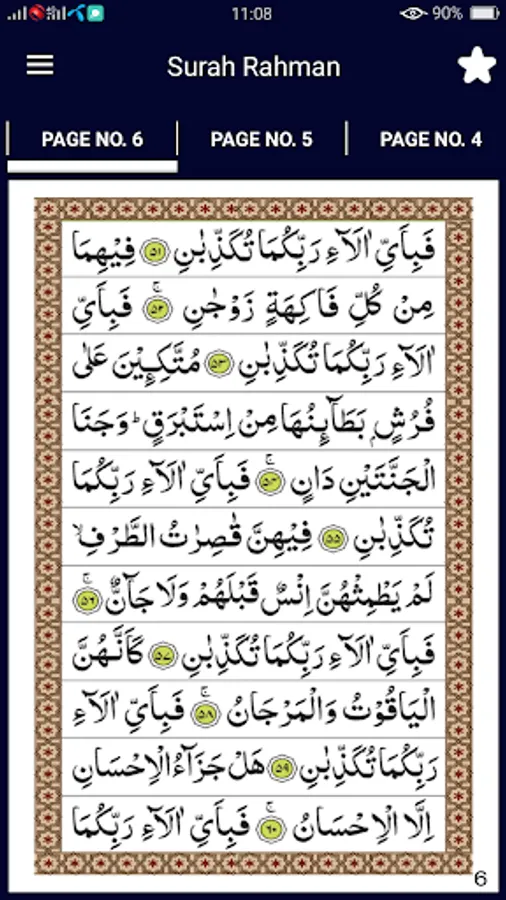 11:08
90%
Surah Rahman
PAGE NO. 6 PAGE NO. 5 PAGE NO. 4
فَبِاَيِّ اٰلَآءِ رَبِّكُمَا تُكَذِّبٰنِ ۵۱ فِيْهِمَا
مِنْ كُلِّ فَاكِهَةٍ زَوْجٰنِ ۚ ۵۲ فَبِاَيِّ
اٰلَآءِ رَبِّكُمَا تُكَذِّبٰنِ ۵۳ مُتَّكِـِٕيْنَ عَلٰى
فُرُشٍۭ بَطَآىِٕنُهَا مِنْ اِسْتَبْرَقٍ ؕ وَجَنَا
الْجَنَّتَيْنِ دَانٍ ۚ ۵۴ فَبِاَيِّ اٰلَآءِ رَبِّكُمَا
تُكَذِّبٰنِ ۵۵ فِيْهِنَّ قٰصِرٰتُ الطَّرْفِ ۙ
لَمْ يَطْمِثْهُنَّ اِنْسٌ قَبْلَهُمْ وَلَا جَآنٌّ ۚ ۵۶
فَبِاَيِّ اٰلَآءِ رَبِّكُمَا تُكَذِّبٰنِ ۵۷ كَاَنَّهُنَّ
الْيَاقُوْتُ وَالْمَرْجَانُ ۚ ۵۸ فَبِاَيِّ اٰلَآءِ
رَبِّكُمَا تُكَذِّبٰنِ ۵۹ هَلْ جَزَآءُ الْاِحْسَانِ
اِلَّا الْاِحْسَانُ ۚ ۶۰ فَبِاَيِّ اٰلَآءِ رَبِّكُمَا
6